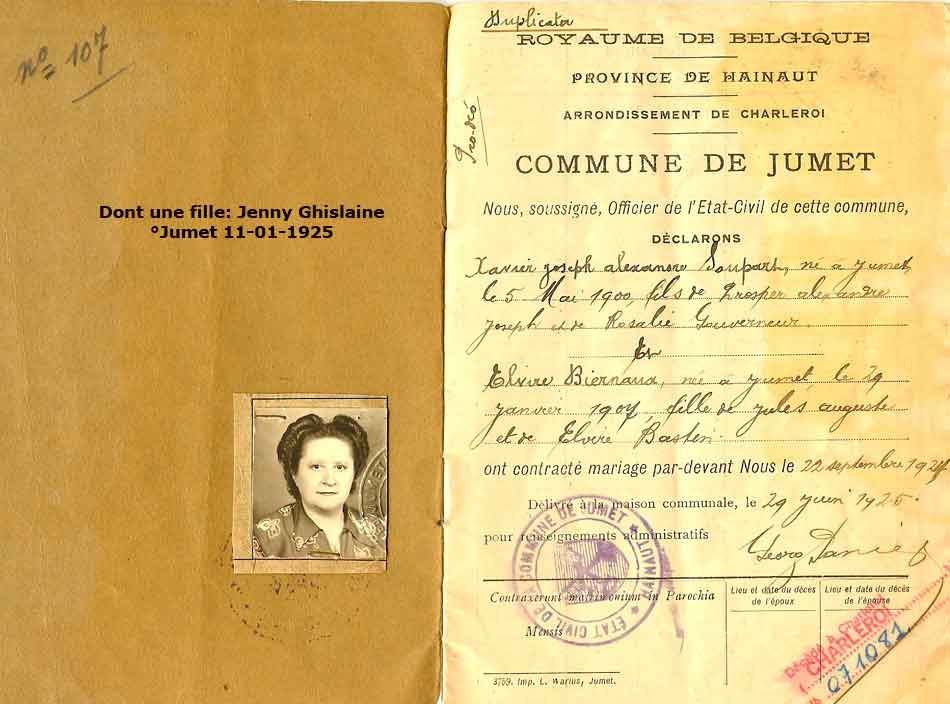 nº 107
Dont une fille: Jenny Ghislaine
°Jumet 11-01-1925
Duplicata
ROYAUME DE BELGIQUE
PROVINCE DE HAINAUT
ARRONDISSEMENT DE CHARLEROI
COMMUNE DE JUMET
Nous, soussigné, Officier de l'Etat-Civil de cette commune,
DÉCLARONS
Xavier Joseph Alexandre Soupart, né à Jumet,
le 5 Mai 1900, fils de Prosper Alexandre
Joseph et de Rosalie Gouverneur.
Et
Elvire Biernaux, née à Jumet, le 29
janvier 1907, fille de Jules, Auguste
et de Elvire Bastin.
ont contracté mariage par-devant Nous le 22 septembre
Délivré à la maison communale, le 29 juin 1925.
pour renseignements administratifs
COMMUNE DE JUMET
HAINAUT
ÉTAT CIVIL DE
Contraxerunt matrimonium in Parochia
Mensis
Lieu et date du décès
de l'époux
Lieu et date du décès
de l'épouse
Décédé à
CHARLEROI
071081
3759. Imp. L. Warlus, Jumet.